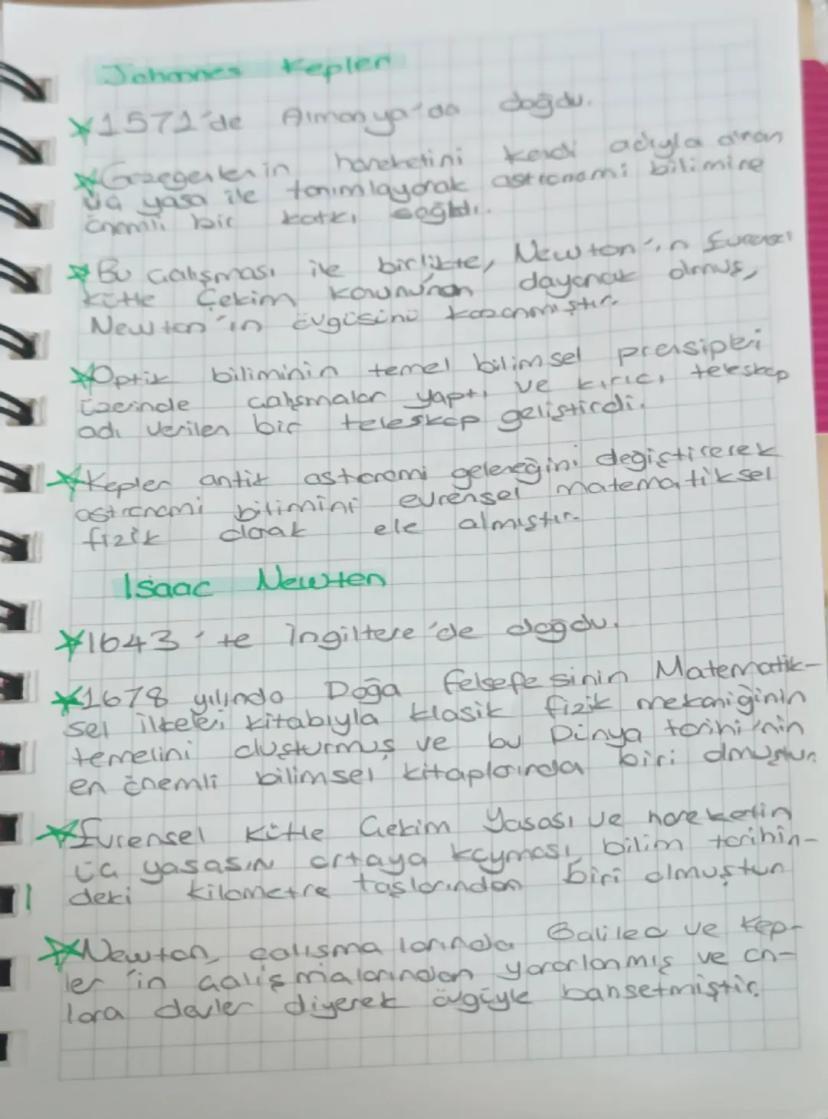 Johannes Kepler
*1571'de Almanya'da doğdu.
*Gezegenlerin hareketini kendi adıyla anılan
üç yasa ile tanımlayarak astronomi bilimine
önemli bir katkı sağladı.
*Bu çalışması ile birlikte, Newton'ın Evrensel
kütle Çekim kanununa dayanak olmuş,
Newton'ın övgüsünü kazanmıştır.
*Optik biliminin temel bilimsel prensipleri
üzerinde çalışmalar yaptı ve kırıcı teleskop
adı verilen bir teleskop geliştirdi.
*Kepler antik astronomi geleneğini değiştirerek
astronomi bilimini evrensel matematiksel
fizik olarak ele almıştır.
Isaac Newton
*1643'te İngiltere'de doğdu.
*1678 yılında Doğa felsefesinin Matematik-
sel ilkeleri kitabıyla klasik fizik mekaniğinin
temelini oluşturmuş ve bu Dünya tarihi'nin
en önemli bilimsel kitaplarında biri olmuştur
*Evrensel Kütle Çekim Yasası ve hareketin
üç yasasın ortaya koyması, bilim tarihin-
deki kilometre taşlarından biri olmuştur
*Newton, çalışmalarında Galileo ve Kep-
ler'in çalışmalarından yararlanmış ve on-
lara devler diyerek övgüyle bahsetmiştir.